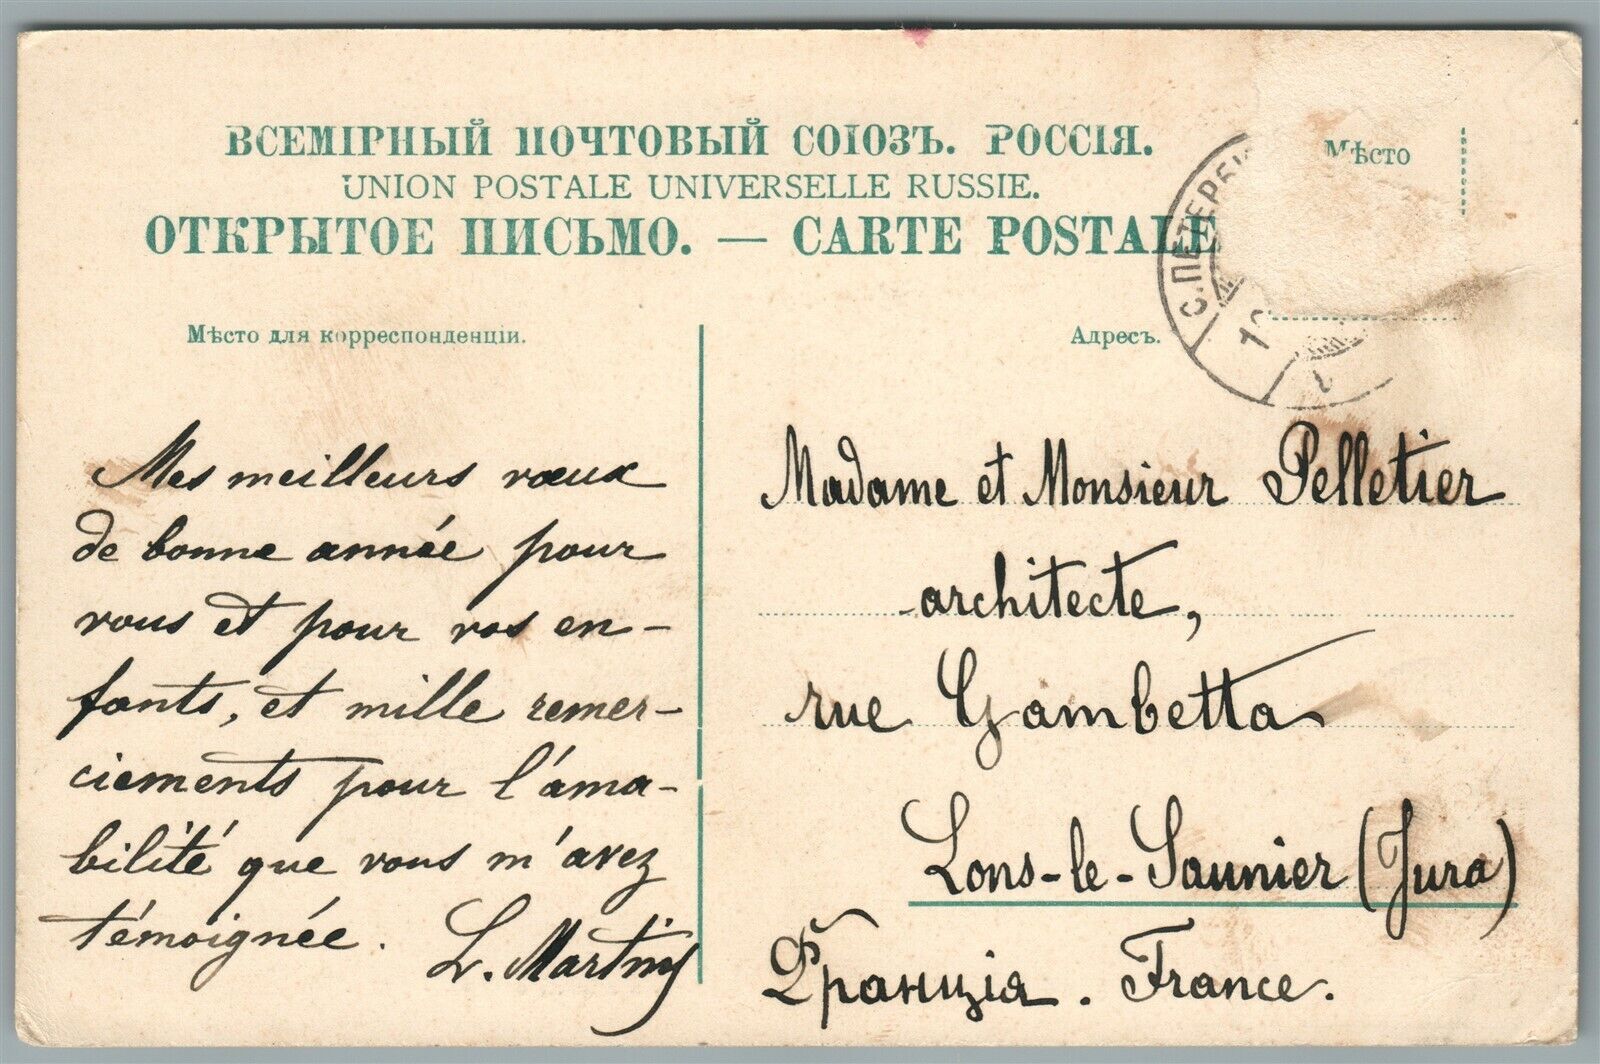 ВСЕМІРНЫЙ ПОЧТОВЫЙ СОЮЗЪ. РОССІЯ.
UNION POSTALE UNIVERSELLE RUSSIE.
ОТКРЫТОЕ ПИСЬМО. — CARTE POSTALE
Мѣсто
С.ПЕТЕРБУ
Мѣсто для корреспонденціи.
Адресъ.
Mes meilleurs vœux
de bonne année pour
vous et pour vos en-
fants, et mille remer-
ciements pour l'ama-
bilité que vous m'avez
témoignée.
L. Martiny
Madame et Monsieur Pelletier
architecte,
rue Gambetta
Lons-le-Saunier (Jura)
Франція. France.